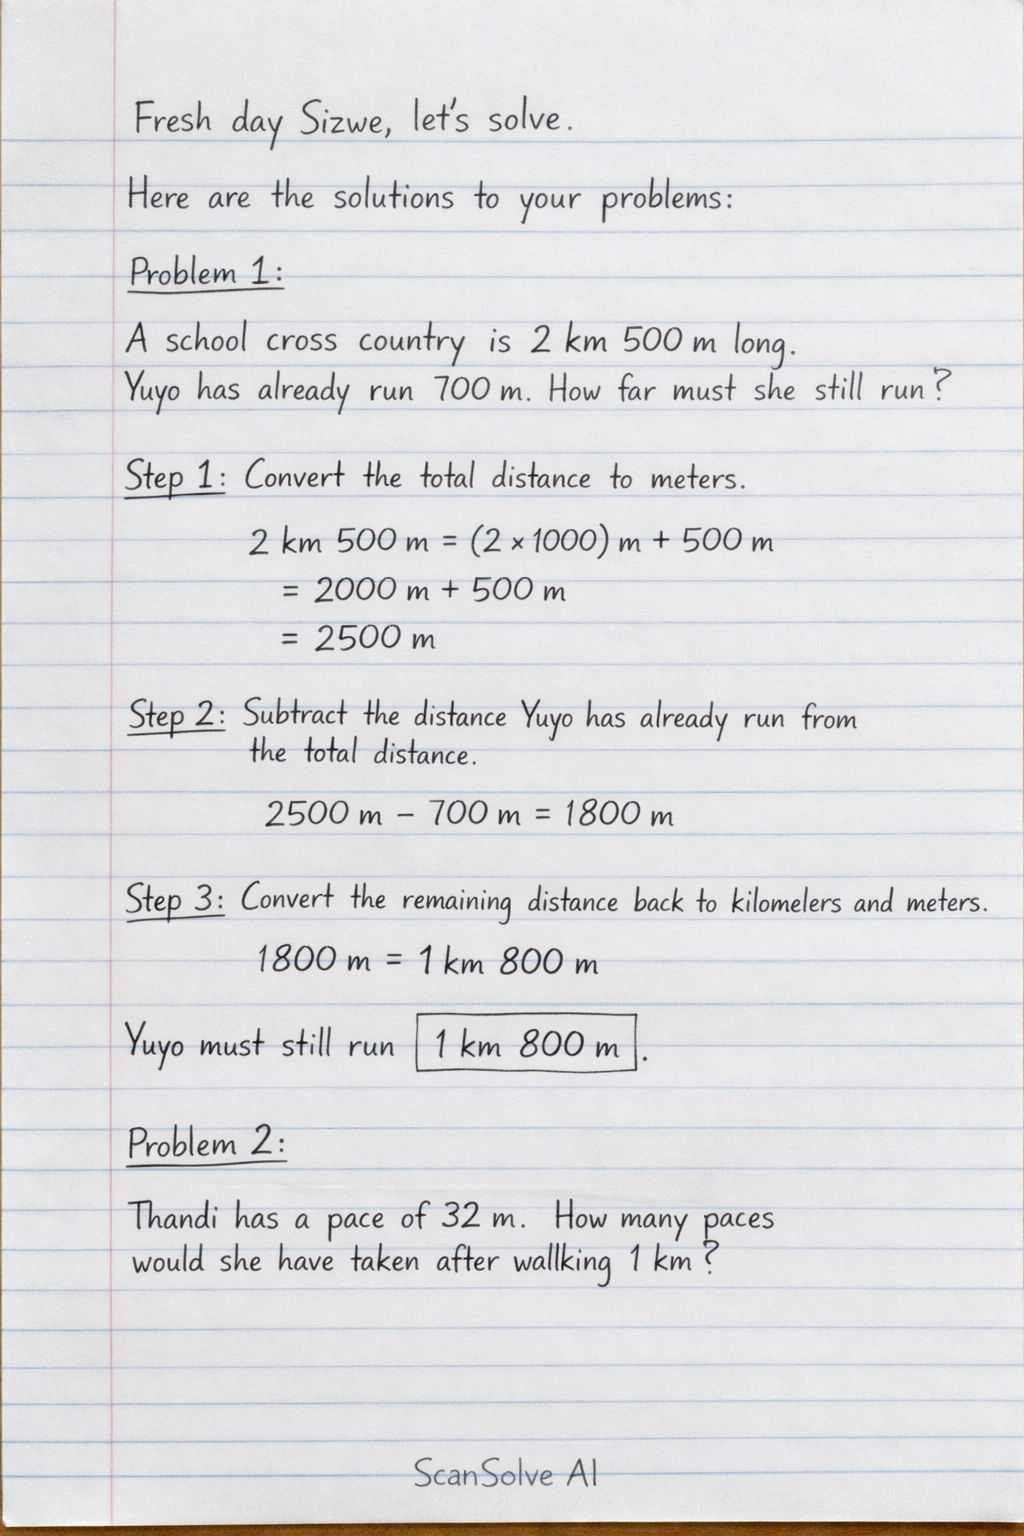 Fresh day Sizwe, let's solve.
Here are the solutions to your problems:
Problem 1:
A school cross country is 2 km 500 m long.
Yuyo has already run 700 m. How far must she still run?
Step 1: Convert the total distance to meters.
2 km 500 m = (2 × 1000) m + 500 m
= 2000 m + 500 m
= 2500 m
Step 2: Subtract the distance Yuyo has already run from
the total distance.
2500 m − 700 m = 1800 m
Step 3: Convert the remaining distance back to kilomelers and meters.
1800 m = 1 km 800 m
Yuyo must still run 1 km 800 m.
Problem 2:
Thandi has a pace of 32 m. How many paces
would she have taken after wallking 1 km?
ScanSolve AI